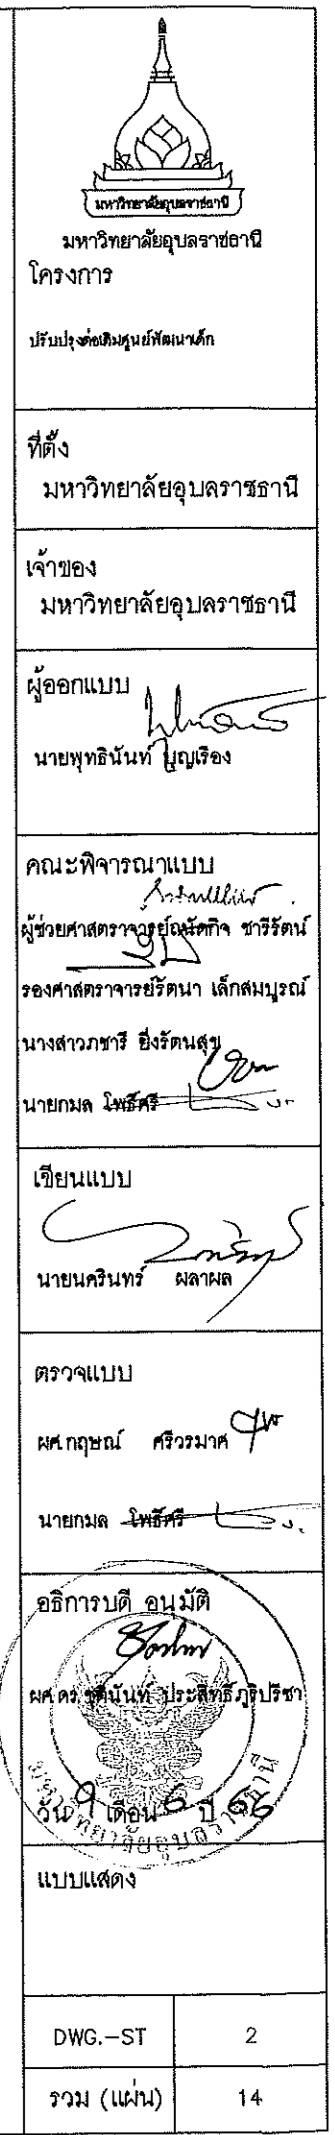 มหาวิทยาลัยอุบลราชธานี
มหาวิทยาลัยอุบลราชธานี
โครงการ
ปรับปรุงต่อเติมศูนย์พัฒนาเด็ก
ที่ตั้ง
มหาวิทยาลัยอุบลราชธานี
เจ้าของ
มหาวิทยาลัยอุบลราชธานี
ผู้ออกแบบ
นายพุทธินันท์ บุญเรือง
คณะพิจารณาแบบ
ผู้ช่วยศาสตราจารย์ถนัดกิจ ชารีรัตน์
รองศาสตราจารย์รัตนา เล็กสมบูรณ์
นางสาวภชารี ยิ่งรัตนสุข
นายกมล โพธิ์ศรี
เขียนแบบ
นายนครินทร์ ผลาผล
ตรวจแบบ
ผศ.กฤษณ์ ศรีวรมาศ
นายกมล โพธิ์ศรี
อธิการบดี อนุมัติ
ผศ.ดร.ชุตินันท์ ประสิทธิ์ภูริปรีชา
วัน 9 เดือน 6 ปี 66
มหาวิทยาลัยอุบลราชธานี
แบบแสดง
DWG.-ST 2
รวม (แผ่น) 14